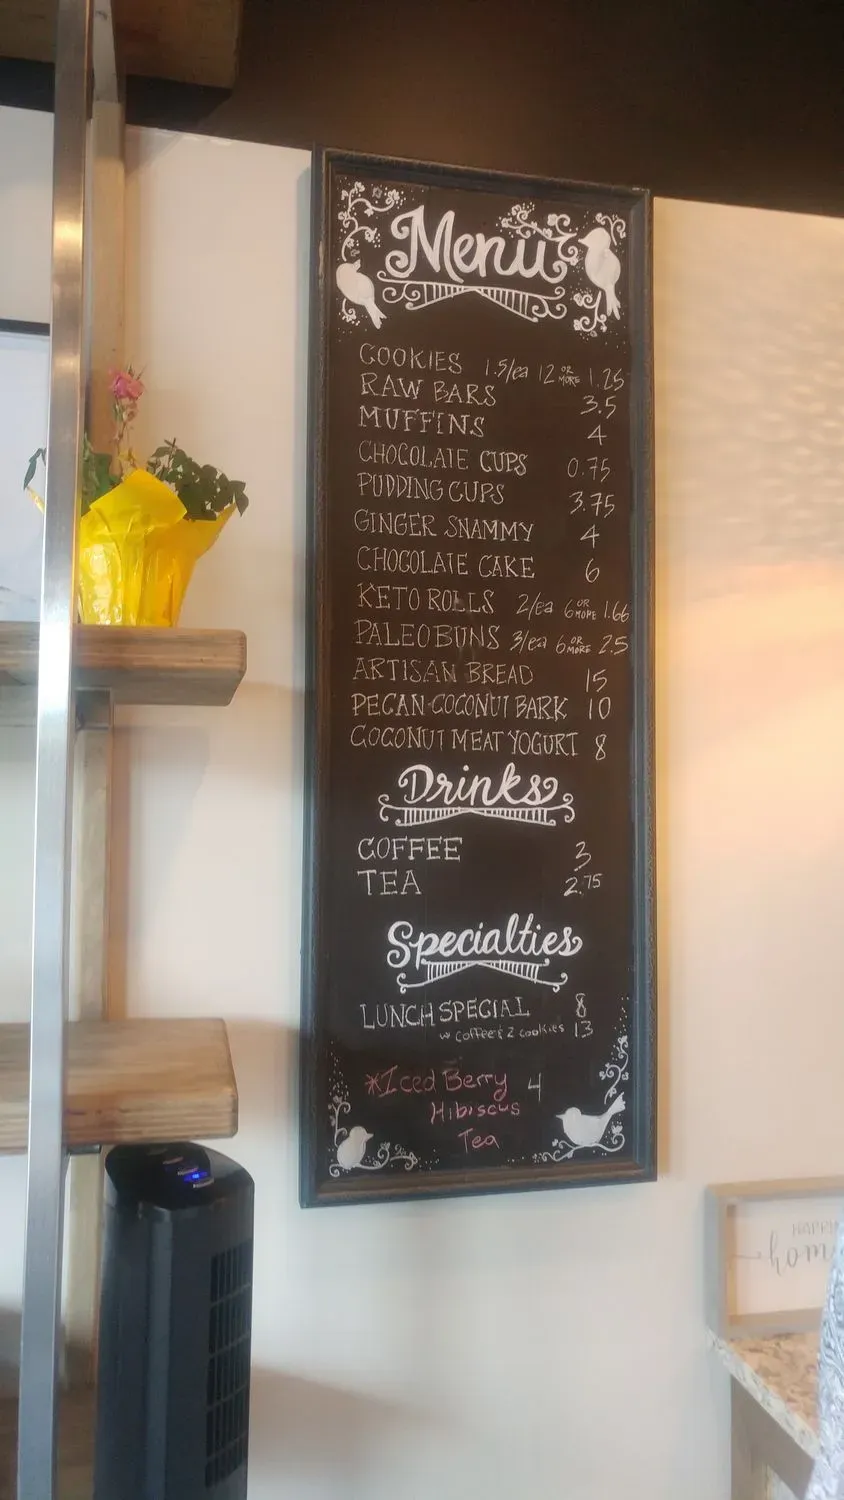 Menu
COOKIES 1.5/ea 12 OR MORE 1.25
RAW BARS 3.5
MUFFINS 4
CHOCOLATE CUPS 0.75
PUDDING CUPS 3.75
GINGER SNAMMY 4
CHOCOLATE CAKE 6
KETO ROLLS 2/ea 6 OR MORE 1.66
PALEO BUNS 3/ea 6 OR MORE 2.5
ARTISAN BREAD 15
PECAN COCONUT BARK 10
COCONUT MEAT YOGURT 8
Drinks
COFFEE 3
TEA 2.75
Specialties
LUNCH SPECIAL 8
w coffee & 2 cookies 13
*Iced Berry 4
Hibiscus
Tea